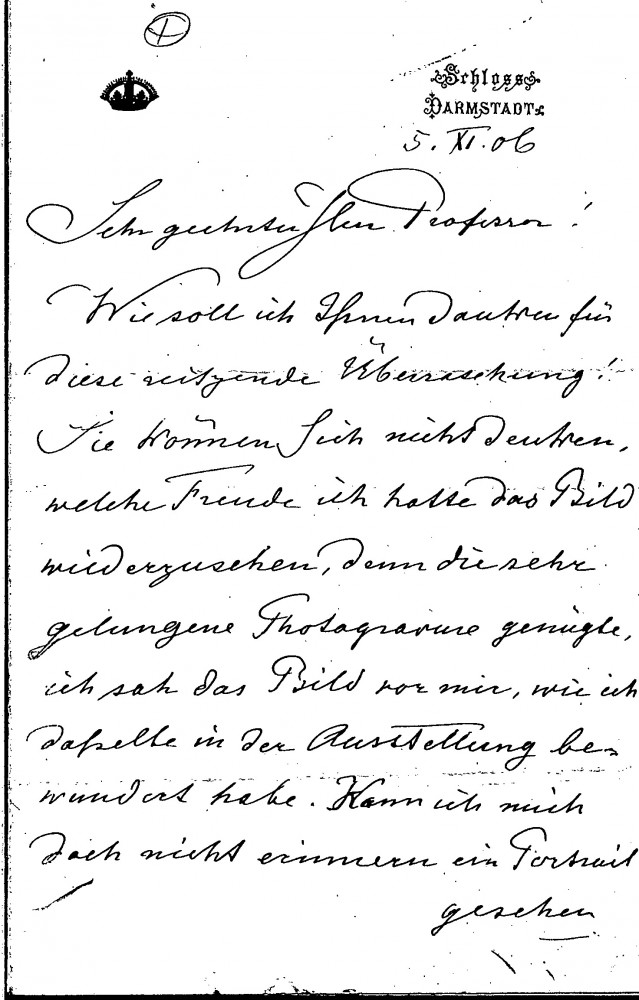 Schloss
DARMSTADT
5. XI. 06
Sehr geehrtester Herr Professor!
Wie soll ich Ihnen danken für
diese reitzende Überraschung!
Sie können Sich nicht denken,
welche Freude ich hatte das Bild
wiederzusehen, denn die sehr
gelungene Photogravure genügte,
ich sah das Bild vor mir, wie ich
daßelbe in der Ausstellung be-
wundert habe. Kann ich mich
doch nicht erinnern ein Portrait
gesehen